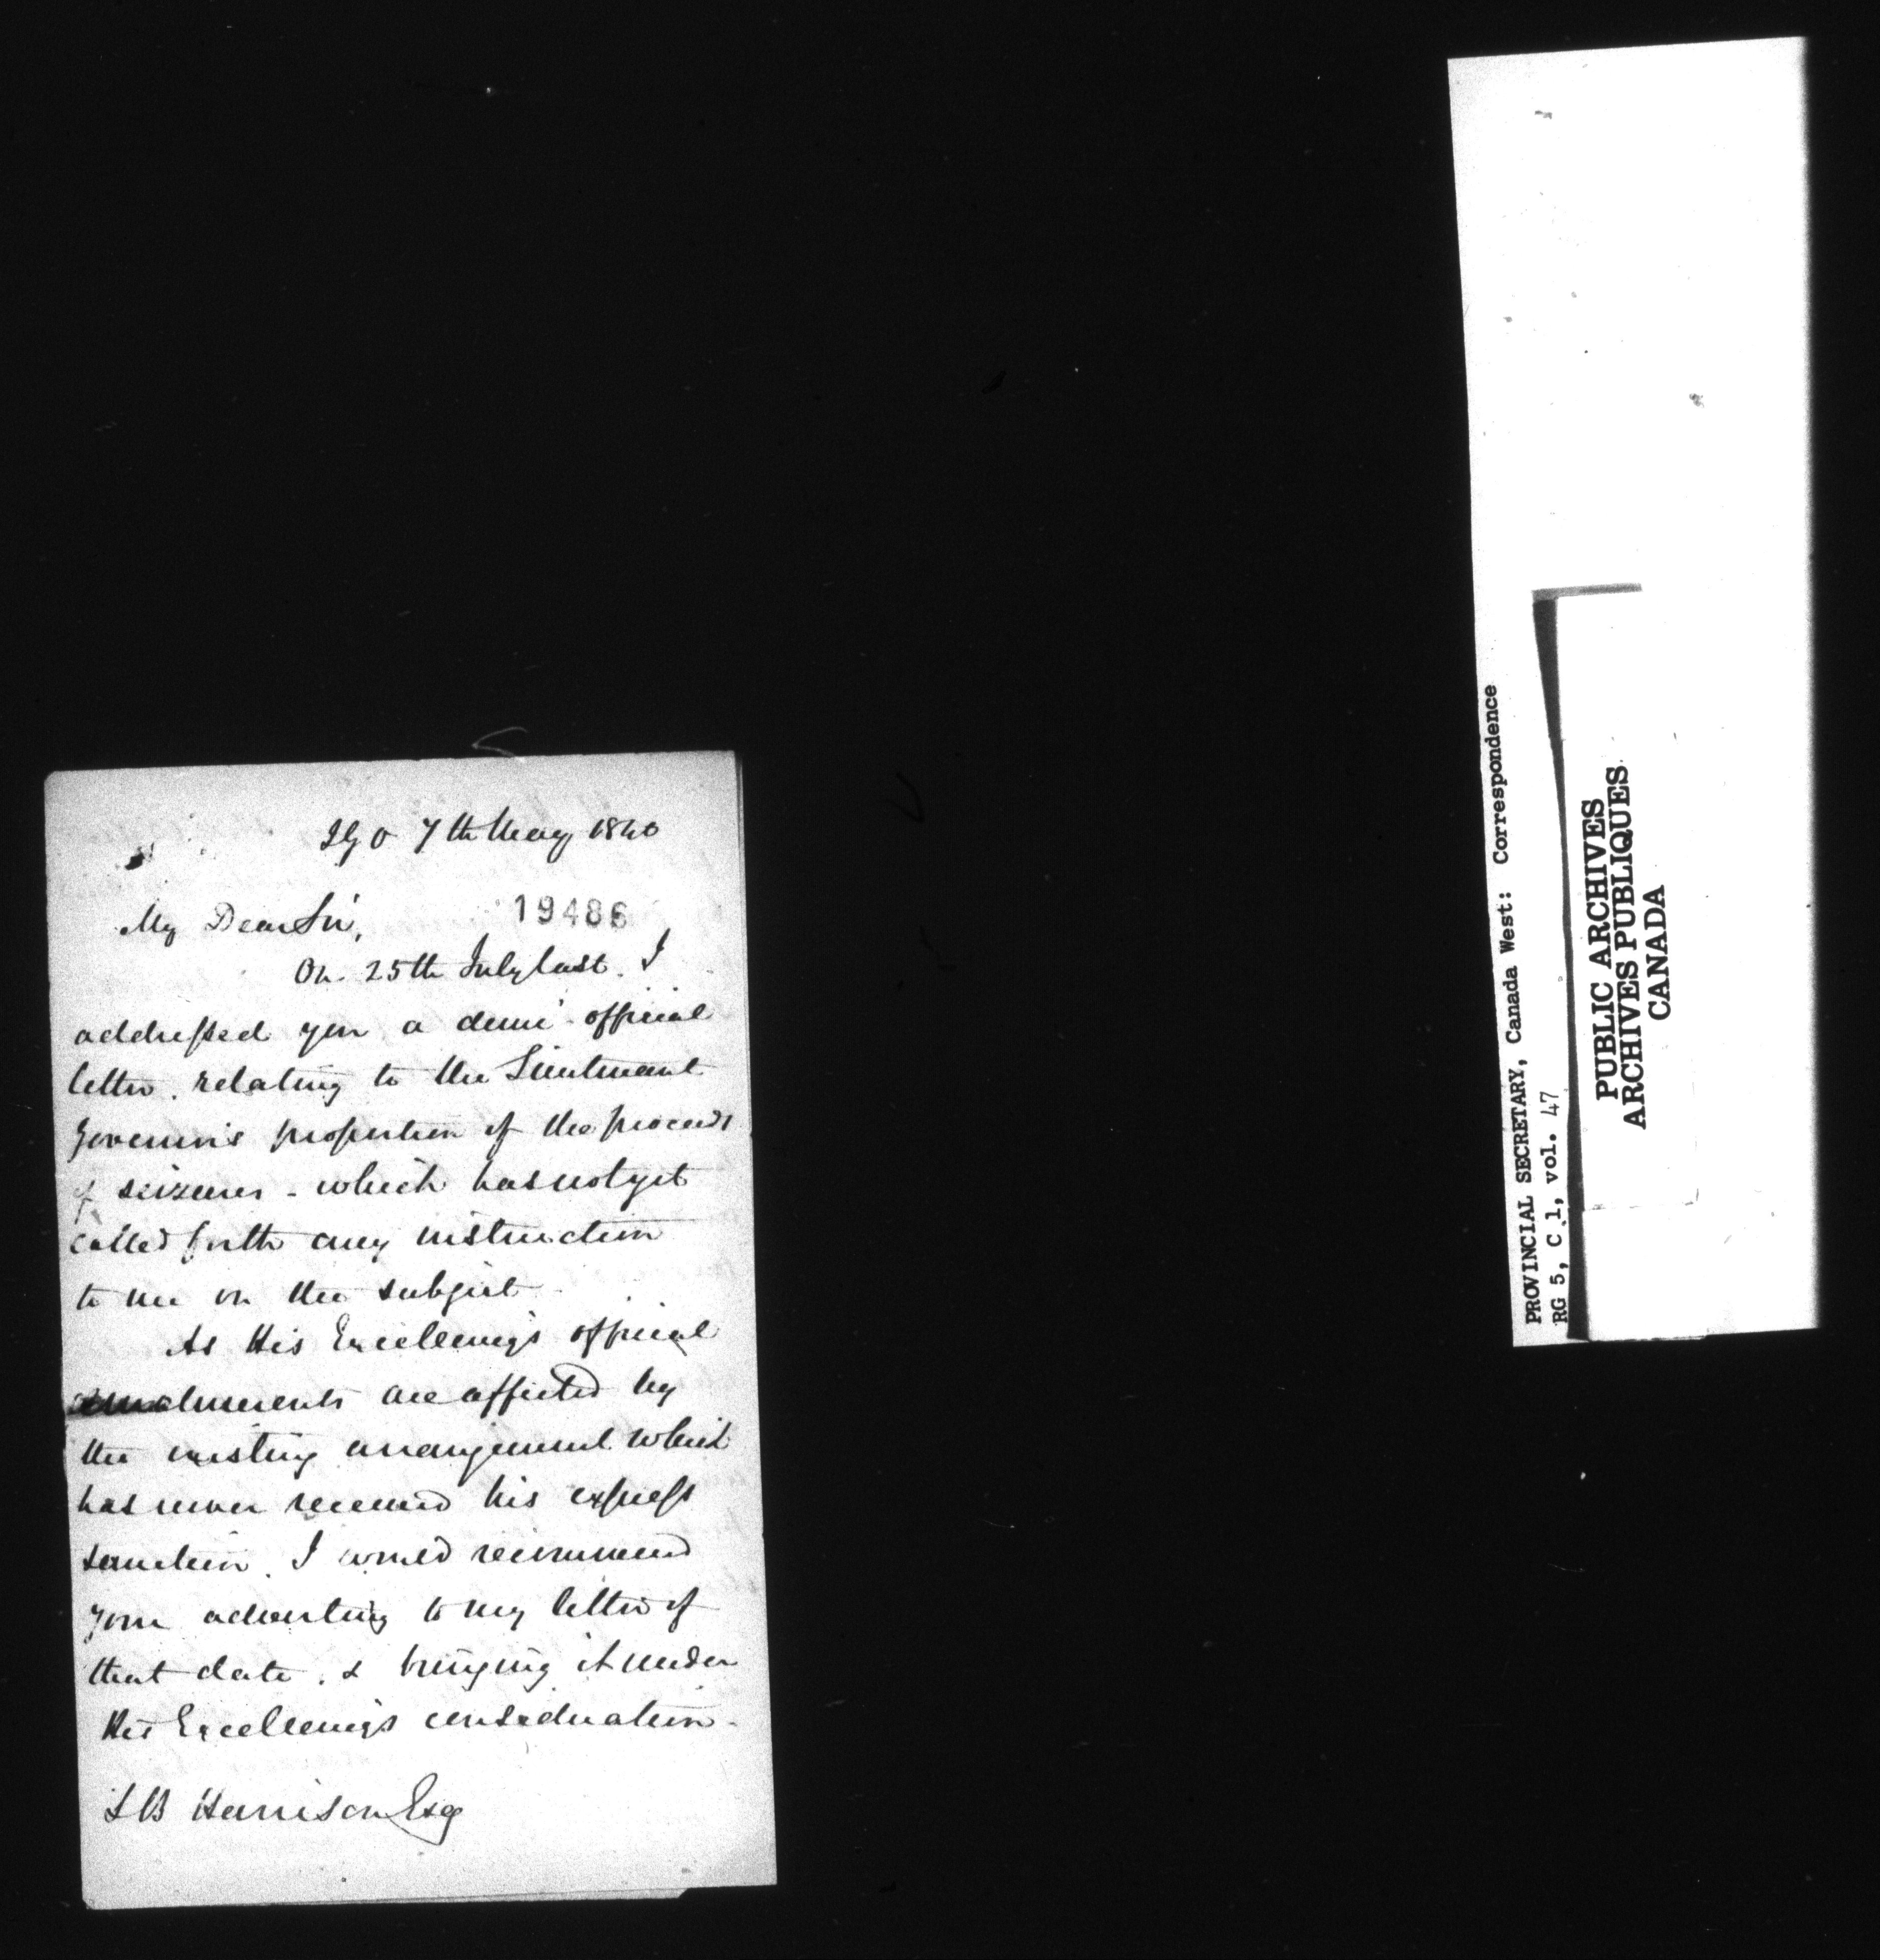 I G O 7th May 1840
19486
My Dear Sir,
On 25th July last. I
addressed you a demi-official
letter. relating to the Lieutenant
Governor's proportion of the proceeds
of seizures - which has not yet
called forth any instruction
to me on the subject -
As His Excellency's official
emoluments are affected by
the existing arrangement which
has never received his express
sanction. I would recommend
your adverting to my letter of
that date, & bringing it under
His Excellency's consideration -
S B Harrison Esq
PROVINCIAL SECRETARY, Canada West: Correspondence
RG 5, C 1, vol. 47
PUBLIC ARCHIVES
ARCHIVES PUBLIQUES
CANADA